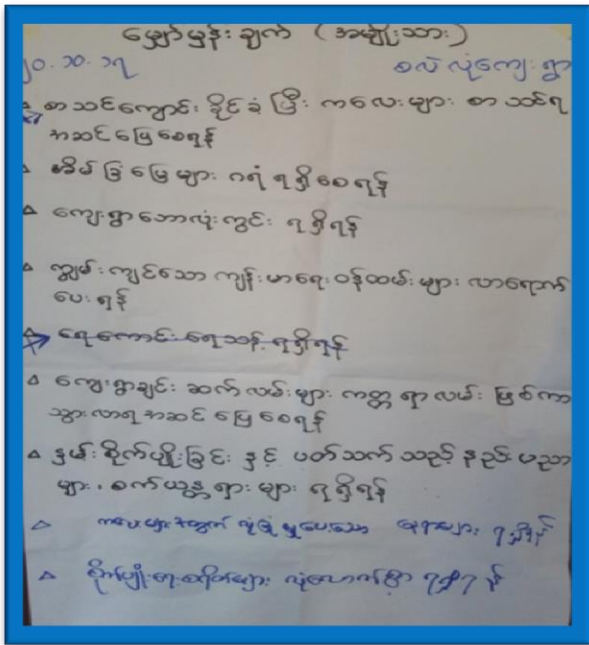 မျှော်မှန်းချက် (အမျိုးသား)
၂၀.၁၁.၁၃ စလဲလုံကျေးရွာ
စာသင်ကျောင်း ခိုင်ခံ့ပြီး ကလေးများ စာသင်ရ
အဆင်ပြေစေရန်
△ အိမ်ခြံမြေများ ဂရံရရှိစေရန်
△ ကျေးရွာဘောလုံးကွင်း ရရှိရန်
△ ကျွမ်းကျင်သော ကျန်းမာရေးဝန်ထမ်းများ လာရောက်
ပေးရန်
△ ရေကောင်းရေသန့် ရရှိရန်
△ ကျေးရွာချင်း ဆက်လမ်းများ ကတ္တရာလမ်း ဖြစ်ကာ
သွားလာရ အဆင်ပြေစေရန်
△ နှမ်းစိုက်ပျိုးခြင်းနှင့် ပတ်သက်သည့် နည်းပညာ
များ၊ စက်ယန္တရားများ ရရှိရန်
△ ကလေးများအတွက် ရရှိရန်
△ စိုက်ပျိုးရေ လုံလောက်စွာ ရရှိရန်